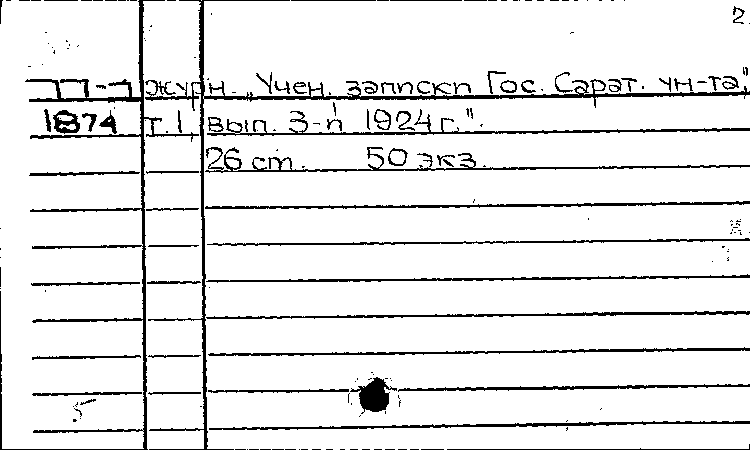 2
77-1 журн. „Учен. записки Гос. Сарат. ун-та",
1874 т. 1, вып. 3-й 1924 г.".
26 ст. 50 экз.
5